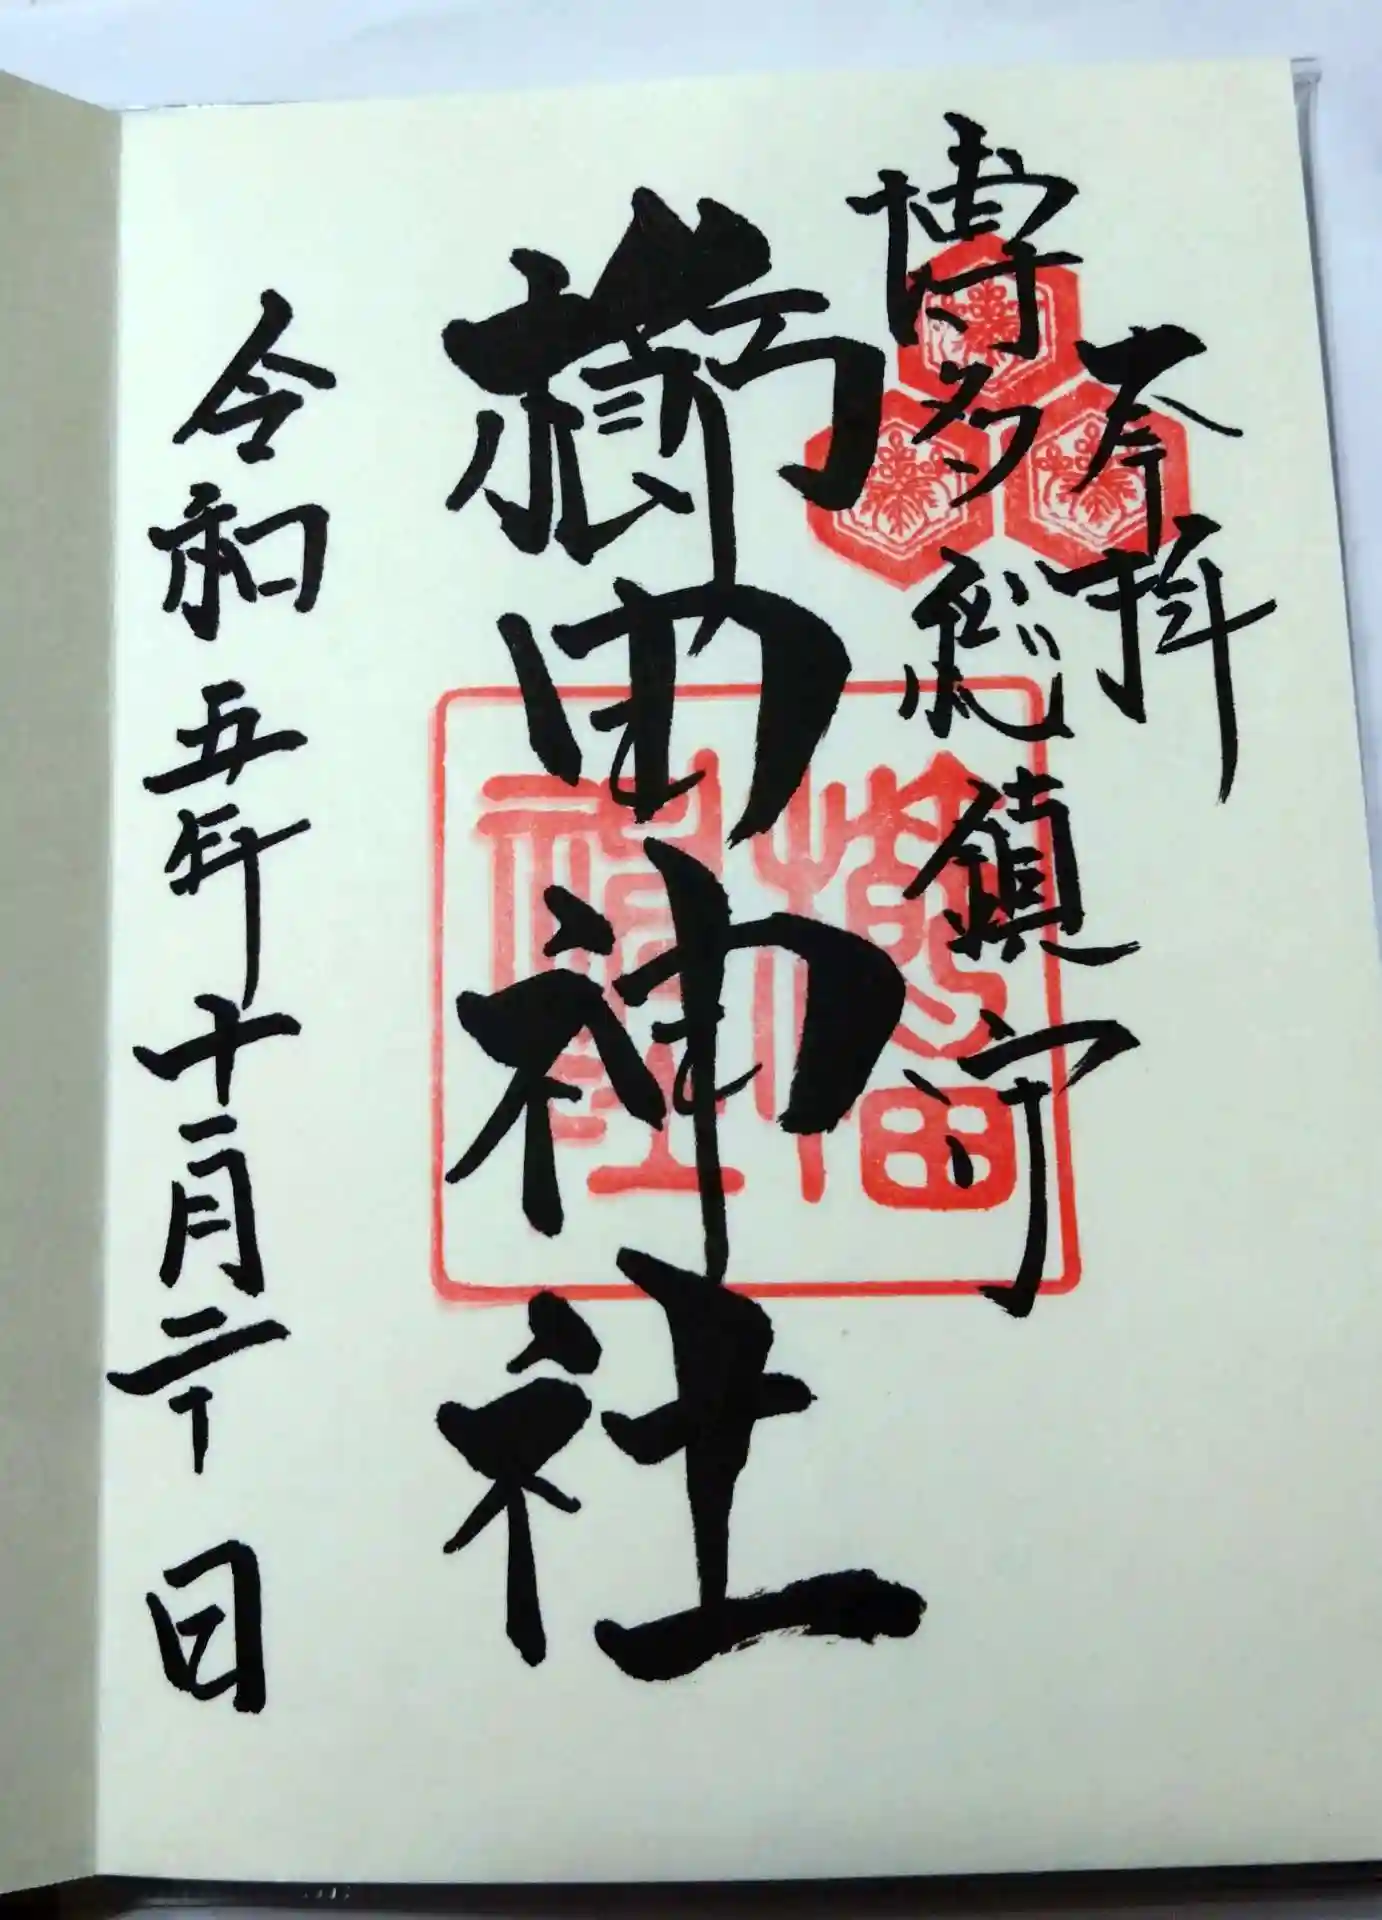 奉拝
博多総鎮守
櫛田神社
櫛田
神社
令和五年十二月二十日